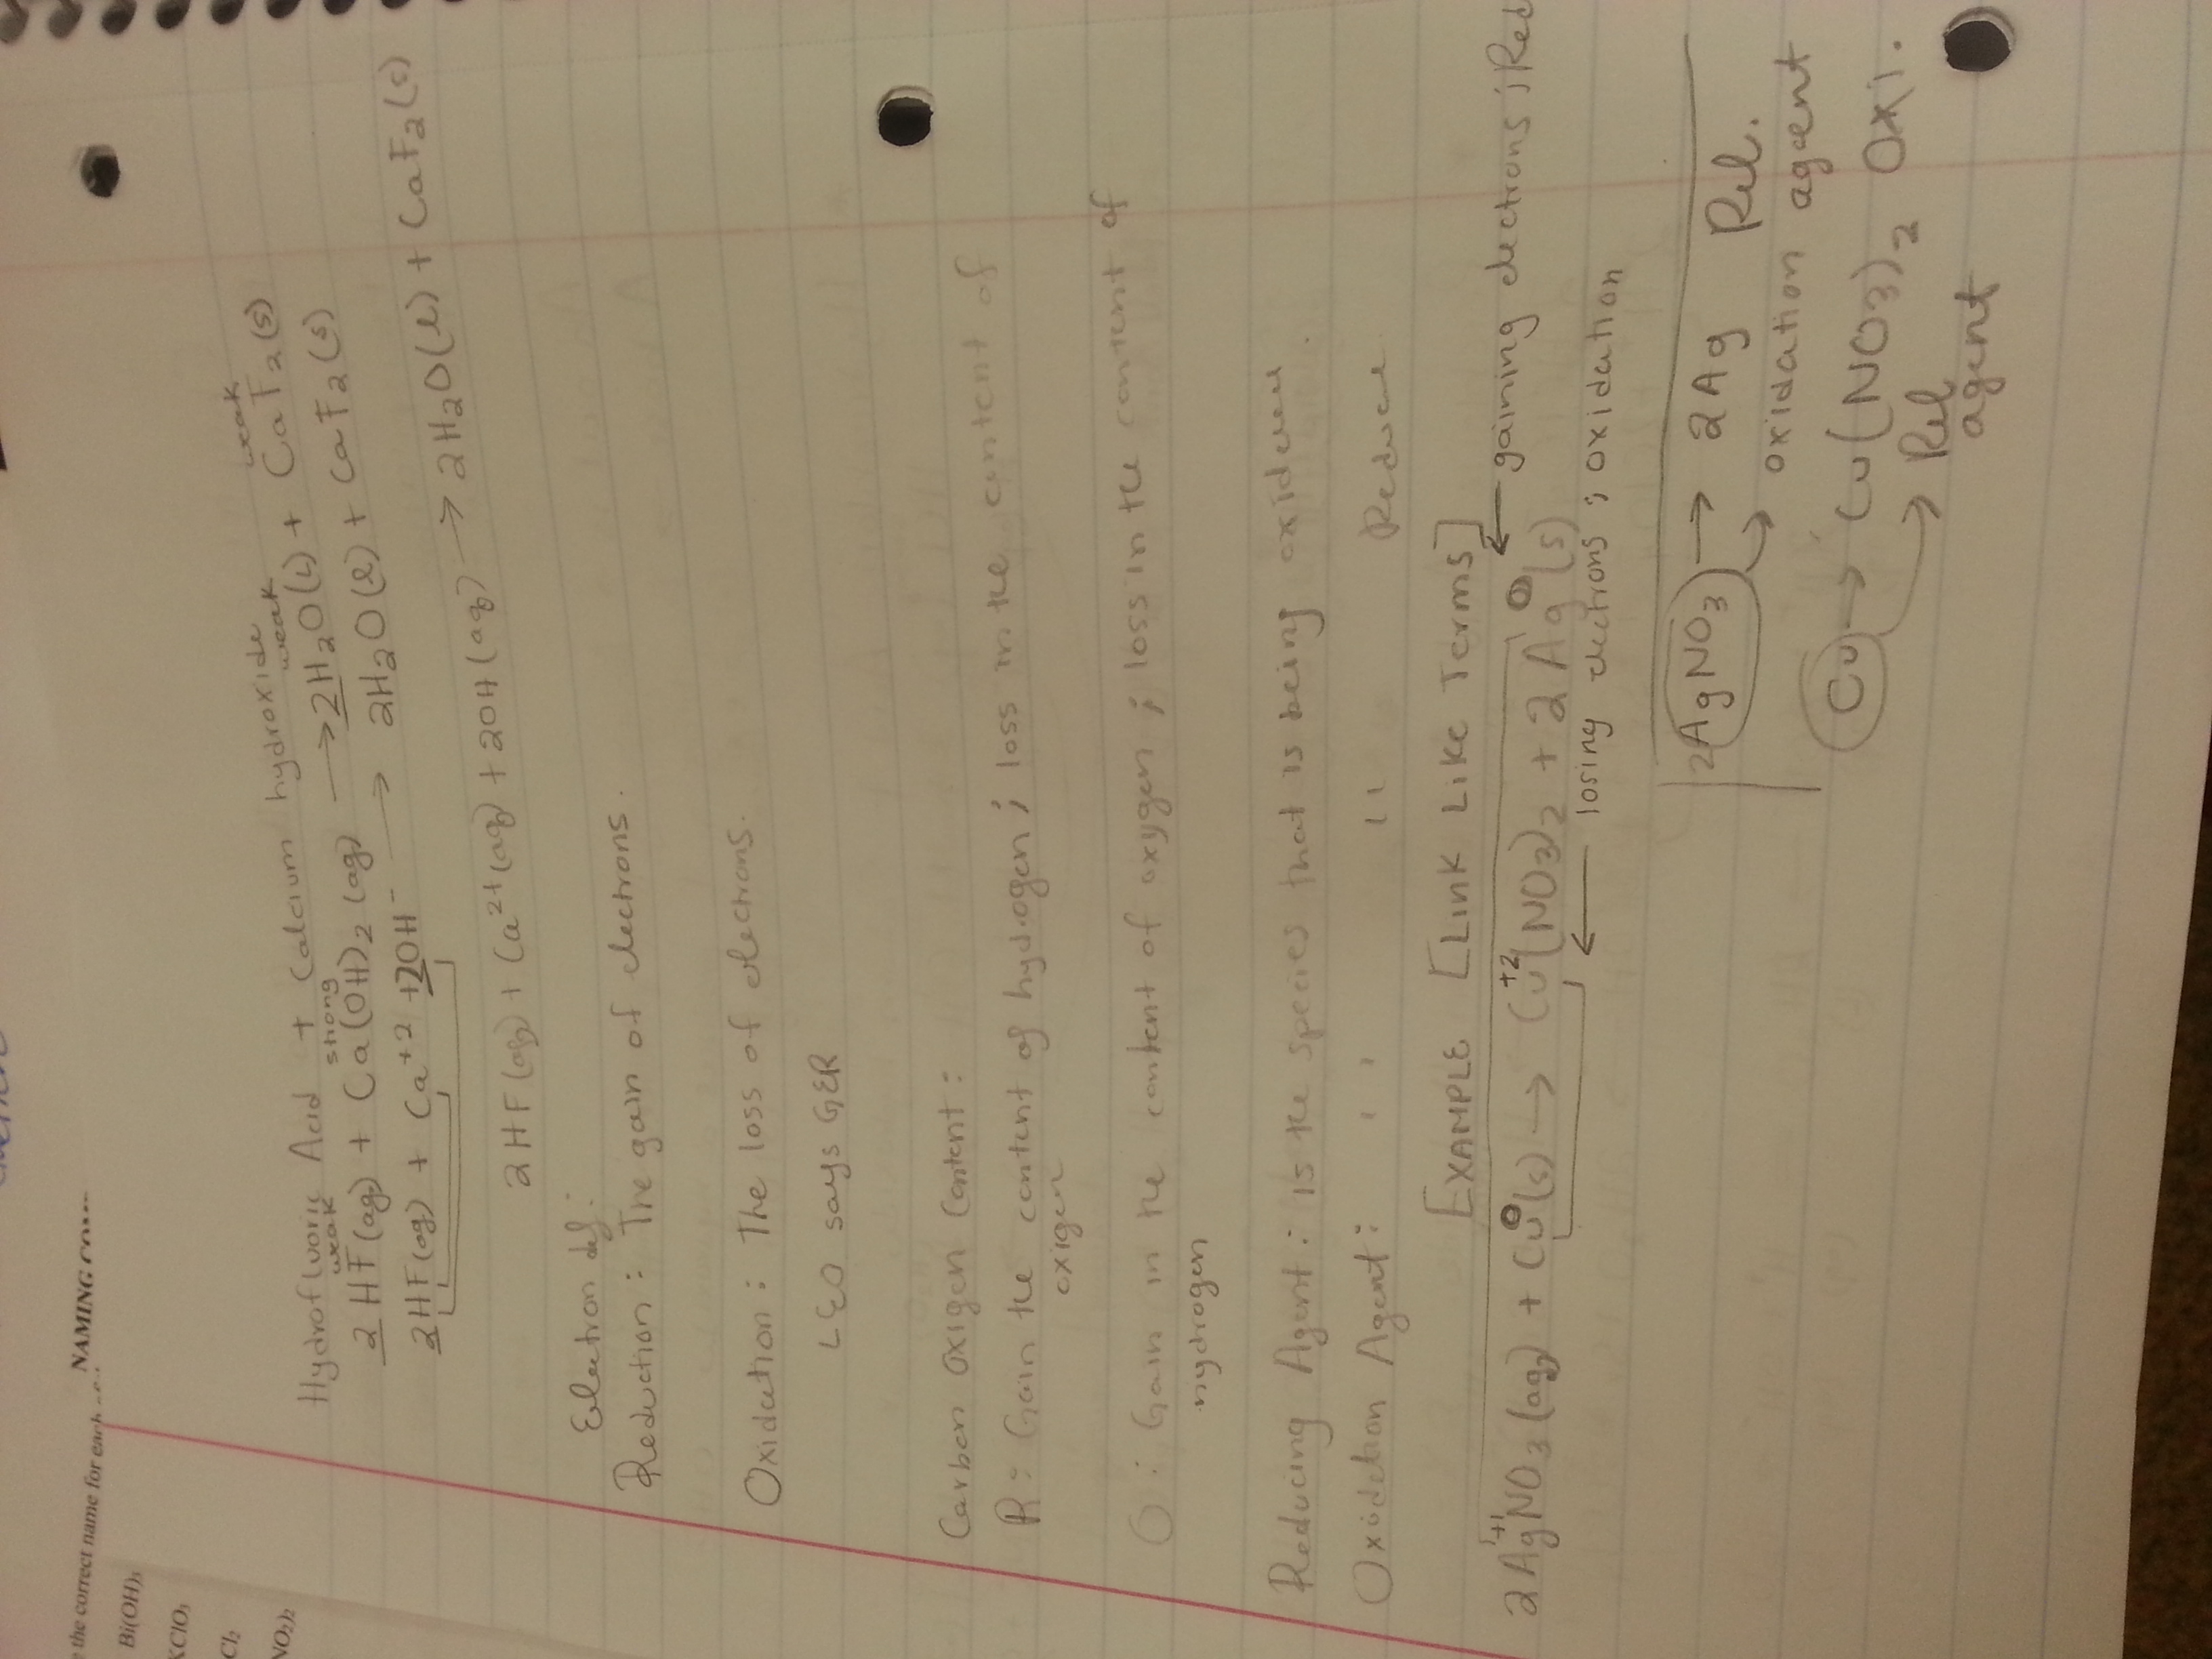 the correct name for each
NAMING
Bi(OH)3
KClO3
Cl2
NO2)2
Hydrofluoric Acid + Calcium hydroxide
weak strong weak weak
2 HF(aq) + Ca(OH)2 (aq) → 2H2O(L) + CaF2(s)
2HF(aq) + Ca+2 + 2OH- → 2H2O(l) + CaF2(s)
2HF(aq) + Ca2+(aq) + 2OH(aq) → 2H2O(l) + CaF2(s)
Electron def:
Reduction: The gain of electrons.
Oxidation: The loss of electrons.
LEO says GER
Carbon Oxigen Content:
R: Gain the content of hydrogen; loss in the content of
oxigen
O: Gain in the content of oxygen; loss in the content of
hydrogen
Reducing Agent: is the species that is being oxidized.
Oxidation Agent: '' '' Reduced.
[EXAMPLE [Link Like Terms]
← gaining electrons; Red
2Ag+1NO3(aq) + Cu0(s) → Cu+2(NO3)2 + 2Ag0(s)
← losing electrons; oxidation
2AgNO3 → 2Ag Red.
→ oxidation agent
Cu → Cu(NO3)2 Oxi.
→ Red
agent